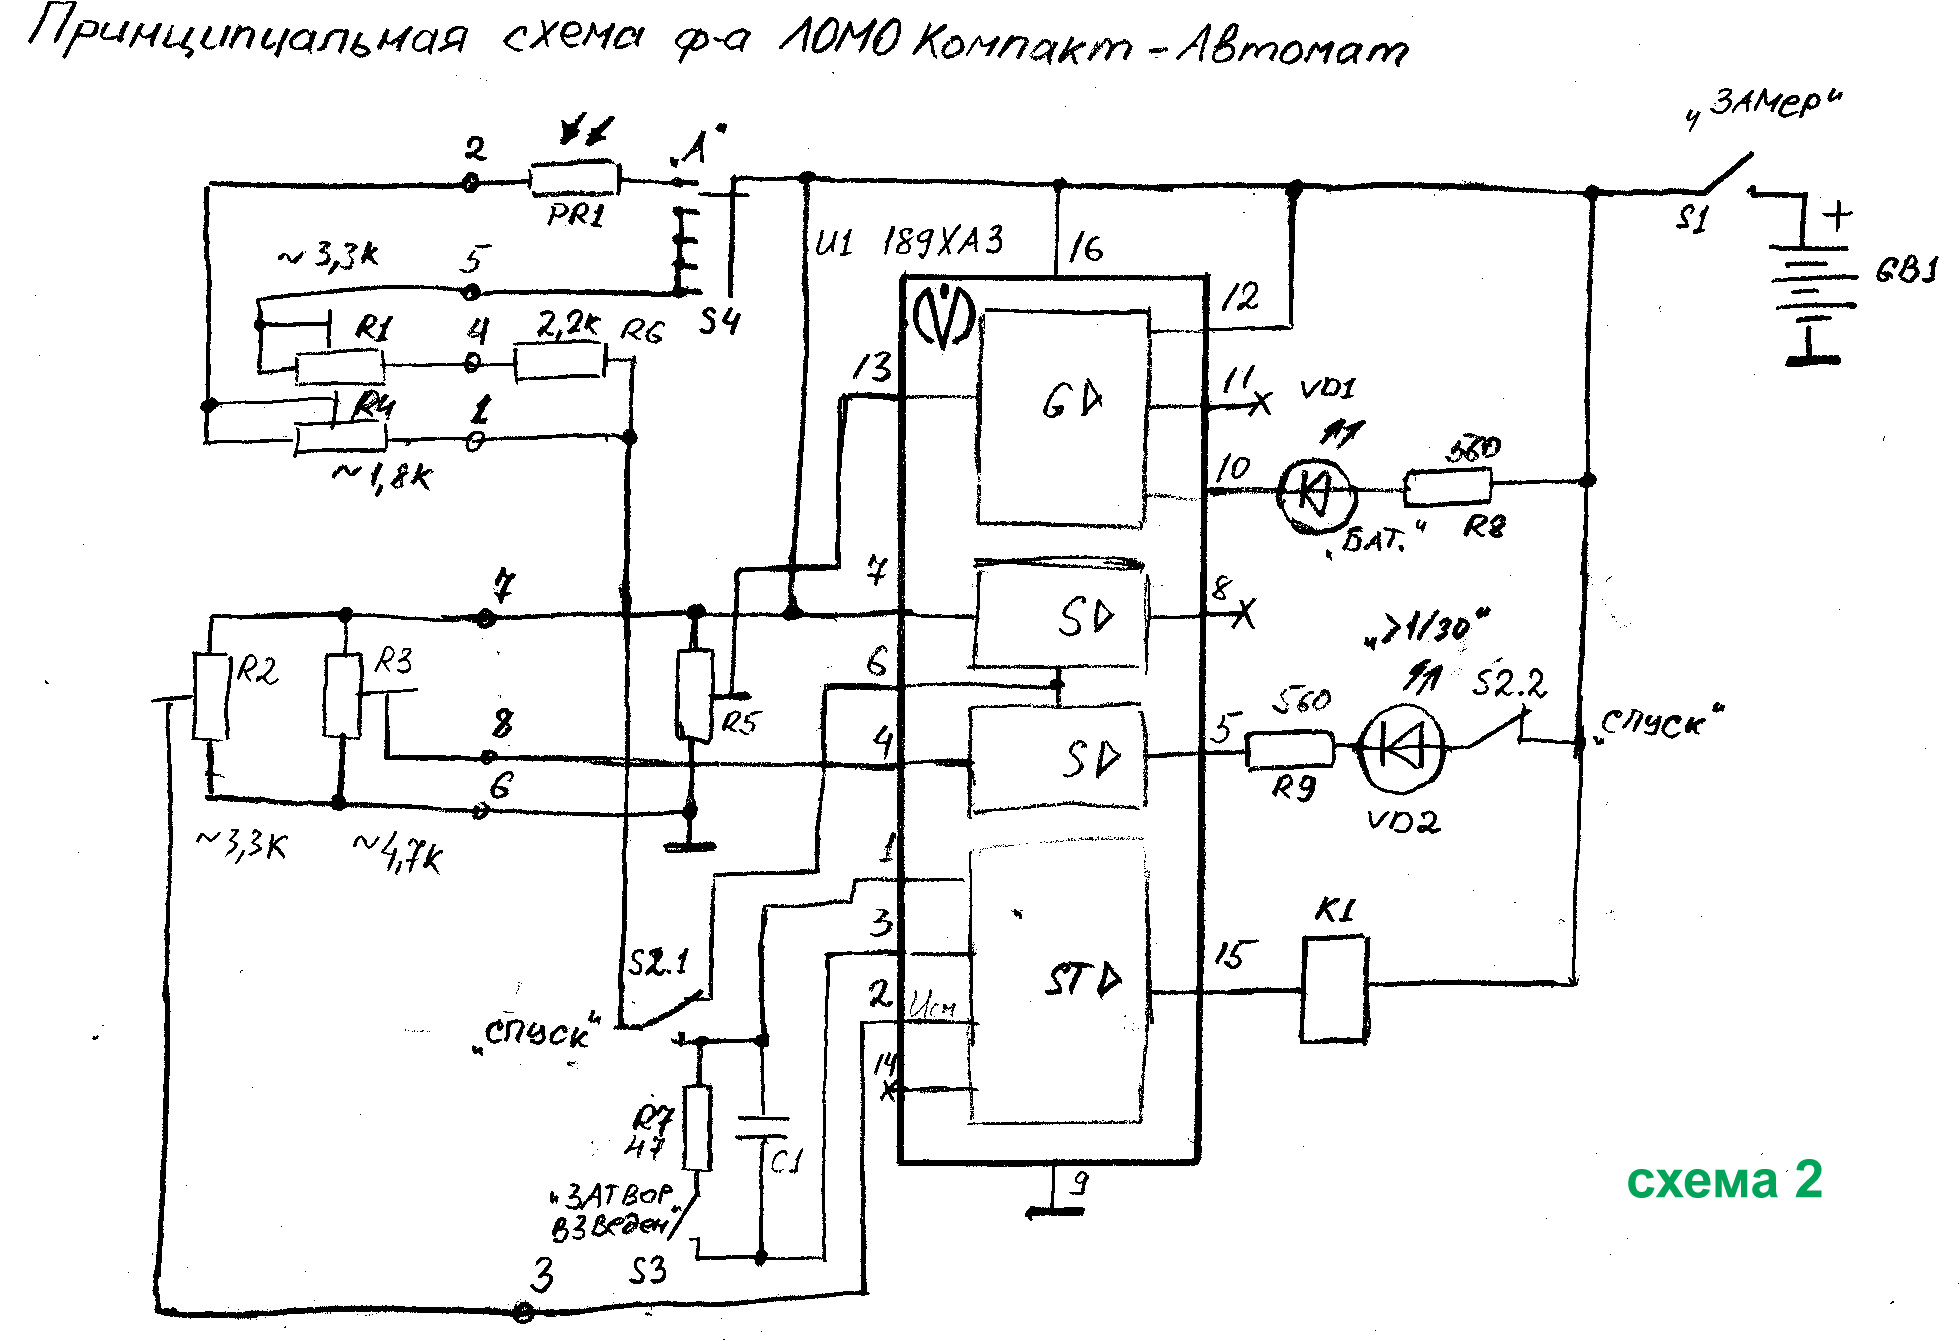 Принципиальная схема ф-а ЛОМО Компакт-Автомат
„ЗАМер“
2
„А“
PR1
S1
+
GB1
~3,3к
5
U1 189ХА3
16
S4
12
R1
4
2,2к
R6
13
G
11
VD1
R4
1
~1,8к
10
560
„БАТ.“
R8
7
7
S
8
„>1/30“
R2
R3
6
R5
S2.2
8
4
S
5
560
„спуск“
6
R9
VD2
~3,3К
~4,7К
1
3
K1
S2.1
ST
15
2
Uсм
„спуск“
14
R7
47
C1
9
схема 2
„ЗАТВОР
ВЗВеден“
S3
3